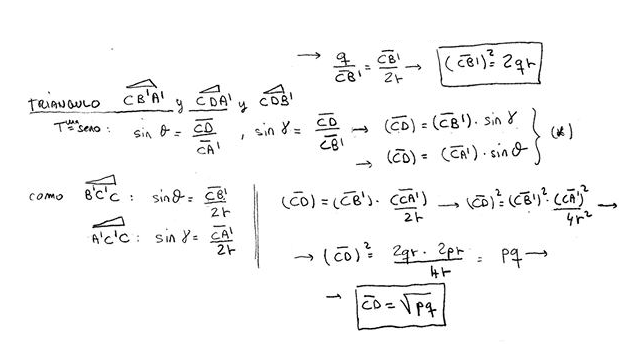 → q/C̅B̅' = C̅B̅'/2r → (C̅B̅')² = 2qr
TRIÁNGULO CB'A' y CDA' y CDB'
Tᵐᵃ seno: sin θ = C̅D̅/C̅A̅' , sin γ = C̅D̅/C̅B̅' → (C̅D̅) = (C̅B̅') · sin γ
→ (C̅D̅) = (C̅A̅') · sin θ } (*)
como B'C'C : sin θ = C̅B̅'/2r
A'C'C : sin γ = C̅A̅'/2r
(C̅D̅) = (C̅B̅') · (C̅C̅A̅')/2r → (C̅D̅)² = (C̅B̅')² · (C̅A̅')²/4r² →
→ (C̅D̅)² = 2qr · 2pr/4r = pq →
→ C̅D̅ = √pq